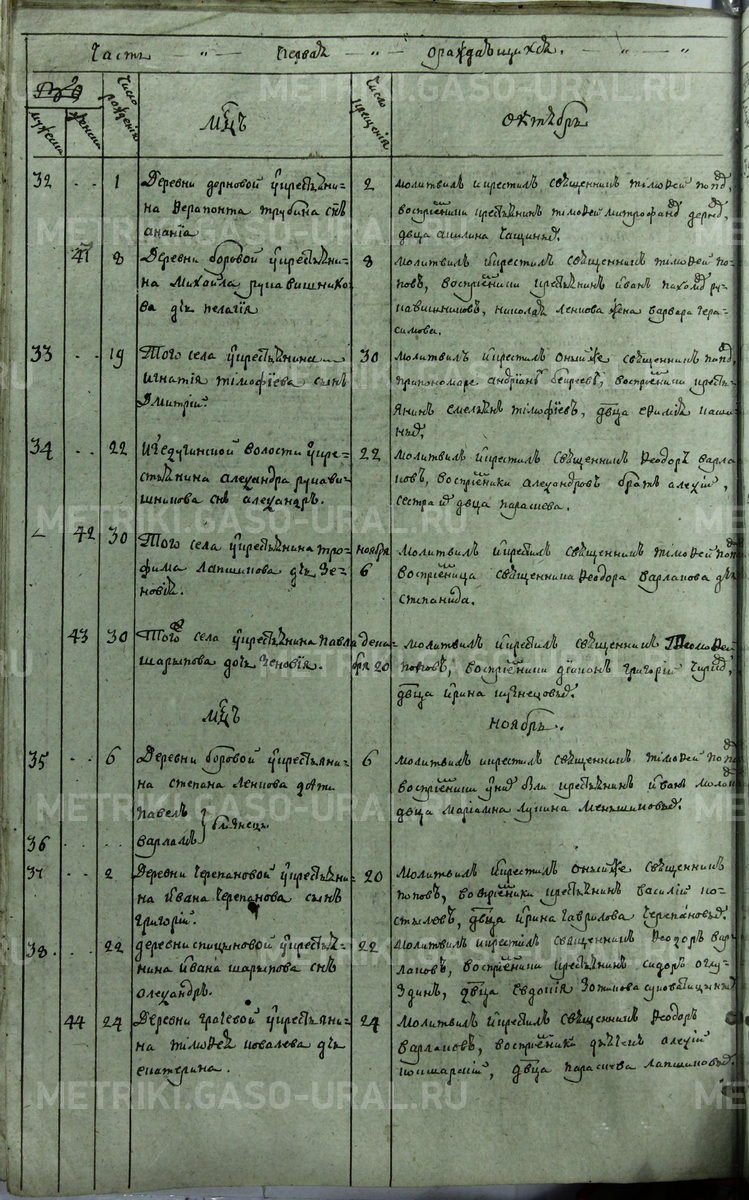 Часть Первая о раждающихся.
Число рождения
Число крещения
мужеска
женска
Мцъ
октябрь
32 1 Деревни дерновой у крестьяни-
на Ферапонта трубина снъ
ананiа
2 молитвилъ и крестилъ священникъ тiмофей поповъ,
восприемники крестьянинъ тiмофей митрофановъ
двца акилина
41 8 Деревни боровой у крестьяни-
на михаила рукавишнико-
ва дчь пелагiя
8 молитвилъ и крестилъ священникъ тiмофей по-
повъ, восприемники крестьянинъ иванъ ру-
кавишниковъ, николая ленкова жена варвара гера-
симова.
33 19 Того села у крестьянина
игнатiя тiмофiева сынъ
Дмитрiй.
30 Молитвилъ и крестилъ оныйже священникъ поповъ,
пономарь андрiанъ восприемники кресть-
янинъ емельянъ тiмофiевъ, двца
34 22 волости у кре-
стьянина алеѯандра рукави-
шникова снъ алеѯандръ.
22 Молитвилъ и крестилъ священникъ Феодоръ варла-
ковъ, восприемники алеѯандровъ братъ алеѯiй,
сестра двца параскева.
42 30 Того села у крестьянина тро-
фима лапшинова дчь зе-
новiя.
ноября 6 Молитвилъ и крестилъ священникъ тiмофей поповъ
восприемница священника Феодора варлакова дчь
степанида.
43 30 Того села у крестьянина павла
шарыпова дочь зеновiя.
дека-
бря 20 молитвилъ и крестилъ священникъ Тiмофей
поповъ, восприемники дiаконъ григорiй
двца ирина кузнецовыхъ.
Мцъ
ноябрь.
35 6 Деревни боровой у крестьяни-
на степана ленкова дети
павелъ
близнецы
36 варлаамъ
6 молитвилъ и крестилъ священникъ тiмофей поповъ
восприемники у нихъ были крестьянинъ иванъ
двца марiамна лукина меншиковыхъ.
37 2 Деревни черепановой у крестьяни-
на ивана черепанова сынъ
григорiй.
20 Молитвилъ и крестилъ оныйже священникъ
поповъ, восприемники крестьянинъ василiй ко-
стылевъ, двца ирина гаврилова черепановыхъ.
38 22 деревни спицыновой у крестья-
нина ивана шарыпова снъ
алеѯандръ.
22 молитвилъ и крестилъ священникъ Феодоръ вар-
лаковъ, восприемники крестьянинъ сидоръ оглу-
здинъ, двца евдокiя зотикова
44 24 Деревни грачевой у крестьяни-
на тiмофея ковалева дчь
екатерина.
24 молитвилъ и крестилъ священникъ Феодоръ
варлаковъ, восприемники дьячекъ алеѯiй
двца параскева лапшиновыхъ.
METRIKI.GASO-URAL.RU